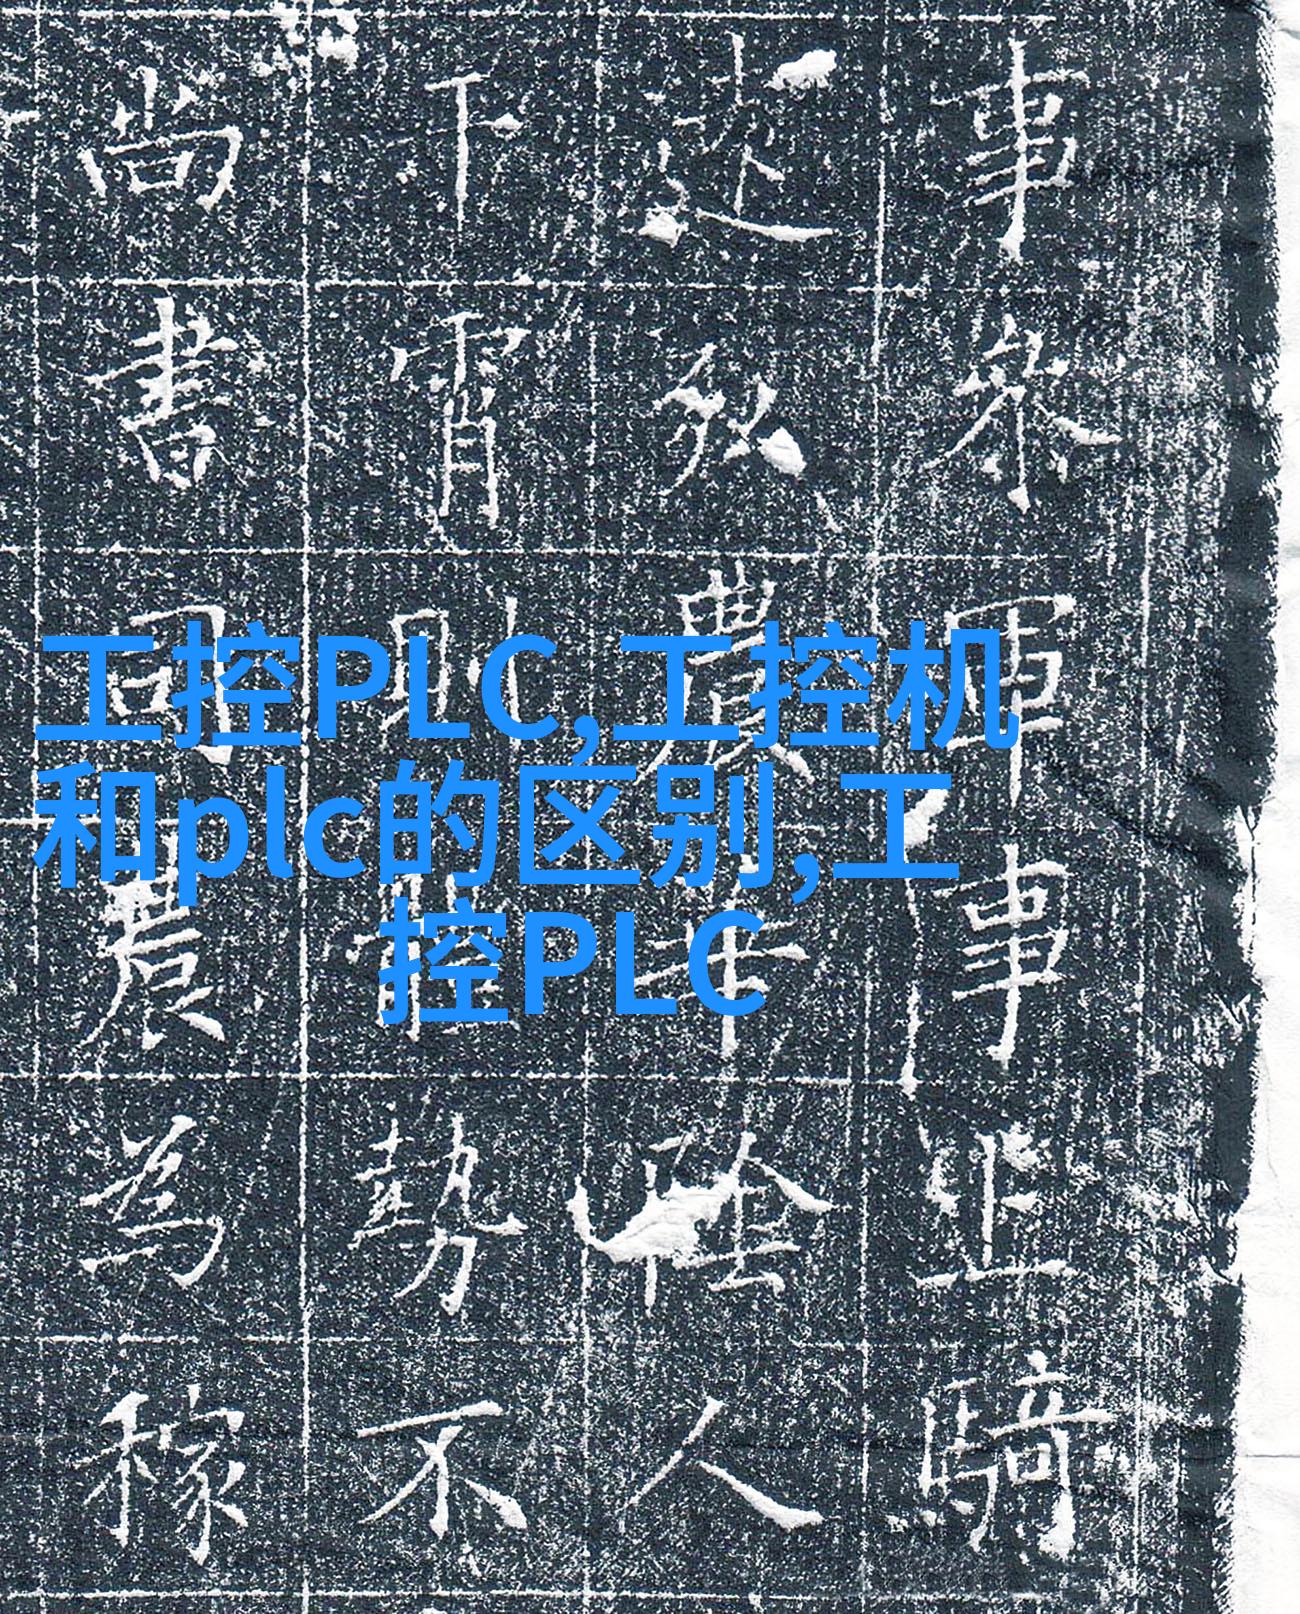 事參軍事監騎
处於農辛陰人
下霄則勢不
尚書司農為稼
工控PLC,工控机
和plc的区别,工
控PLC